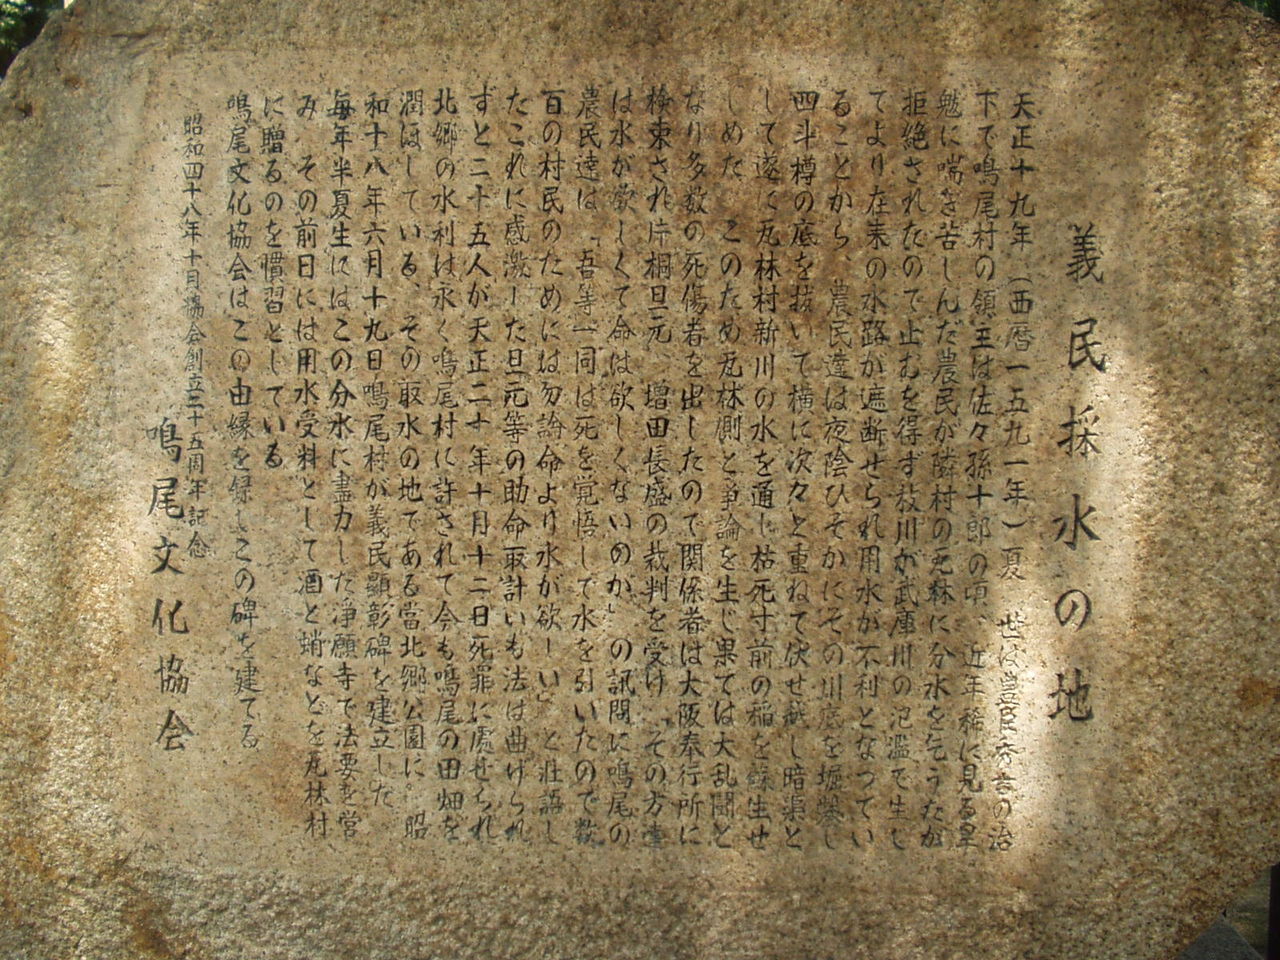 義民採水の地
天正十九年(西暦一五九一年)夏 世は豊臣秀吉の治
下で鳴尾村の領主は佐々孫十郎の頃、近年稀に見る旱
魃に喘ぎ苦しんだ農民が隣村の瓦林に分水を乞うたが
拒絶されたので止むを得ず枝川が武庫川の氾濫で生じ
てより在来の水路が遮断せられ用水が不利となってい
ることから、農民達は夜陰ひそかにその川底を堀鑿し
四斗樽の底を抜いて横に次々と重ねて伏せ越し暗渠と
して遂に瓦林村新川の水を通し枯死寸前の稲を蘇生せ
しめた このため瓦林側と争論を生じ果ては大乱闘と
なり多数の死傷者を出したので関係者は大阪奉行所に
検束され片桐且元、増田長盛の裁判を受け「その方達
は水が欲しくて命は欲しくないのか」の訊問に鳴尾の
農民達は「吾等一同は死を覚悟して水を引いたので数
百の村民のためには勿論命より水が欲しい」と壮語し
たこれに感激した且元等の助命取計いも法は曲げられ
ずと二十五人が天正二十年十月十二日死罪に處せられ
北郷の水利は永く鳴尾村に許されて今も鳴尾の田畑を
潤ほしている、その取水の地である當北郷公園に 昭
和十八年六月十九日鳴尾村が義民顯彰碑を建立した
毎年半夏生にはこの分水に盡力した浄願寺で法要を営
み その前日には用水受料として酒と蛸などを瓦林村
に贈るのを慣習としている
鳴尾文化協会はこの由縁を録しこの碑を建てる
昭和四十八年十月協会創立二十五周年記念
鳴尾文化協会